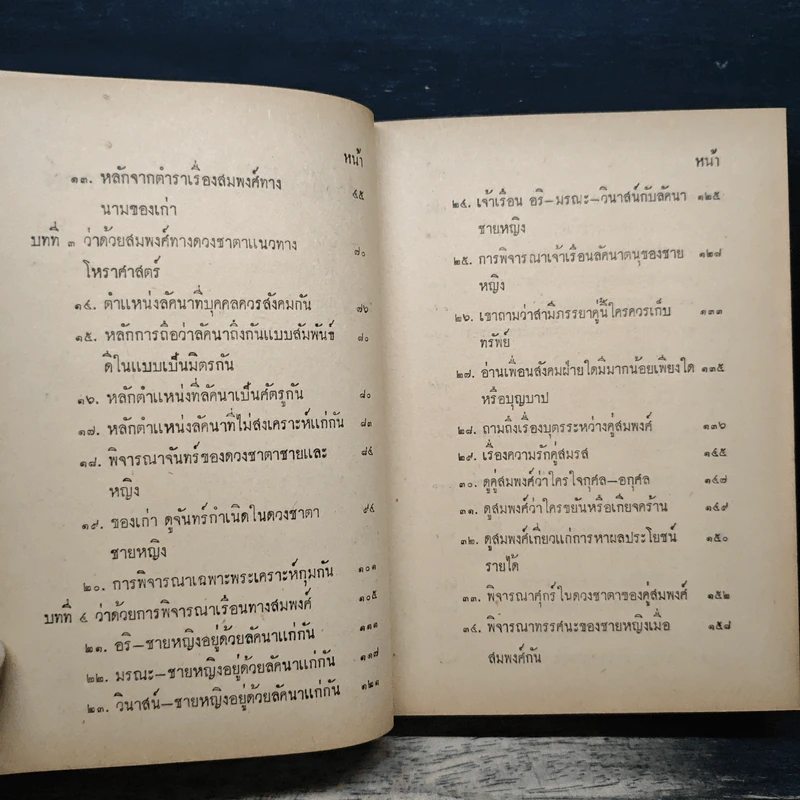 หน้า
๑๓. หลักจากตำราเรื่องสมพงศ์ทาง ๔๕
นามของเก่า
บทที่ ๓ ว่าด้วยสมพงศ์ทางดวงชาตาแนวทาง ๗๐
โหราศาสตร์
๑๔. ตำแหน่งลัคนาที่บุคคลควรสังคมกัน ๗๖
๑๕. หลักการถือว่าลัคนาถึงกันแบบสัมพันธ์ ๘๐
ดีในแบบเป็นมิตรกัน
๑๖. หลักตำแหน่งที่ลัคนาเป็นศัตรูกัน ๘๐
๑๗. หลักตำแหน่งลัคนาที่ไม่สงเคราะห์แก่กัน ๘๓
๑๘. พิจารณาจันทร์ของดวงชาตาชายและ ๘๔
หญิง
๑๙. ของเก่า ดูจันทร์กำเนิดในดวงชาตา ๙๔
ชายหญิง
๒๐. การพิจารณาเฉพาะพระเคราะห์กุมกัน ๑๐๑
บทที่ ๔ ว่าด้วยการพิจารณาเรือนทางสมพงศ์ ๑๐๕
๒๑. อริ—ชายหญิงอยู่ด้วยลัคนาแก่กัน ๑๑๑
๒๒. มรณะ—ชายหญิงอยู่ด้วยลัคนาแก่กัน ๑๑๗
๒๓. วินาสน์—ชายหญิงอยู่ด้วยลัคนาแก่กัน ๑๒๑
หน้า
๒๔. เจ้าเรือน อริ—มรณะ—วินาสน์กับลัคนา ๑๒๕
ชายหญิง
๒๕. การพิจารณาเจ้าเรือนลัคนาตนุของชาย ๑๒๗
หญิง
๒๖. เขาถามว่าสามีภรรยาคู่นี้ใครควรเก็บ ๑๓๓
ทรัพย์
๒๗. อ่านเพื่อนสังคมฝ่ายใดมีมากน้อยเพียงใด ๑๓๕
หรือบุญบาป
๒๘. ถามถึงเรื่องบุตรระหว่างคู่สมพงศ์ ๑๓๖
๒๙. เรื่องความรักคู่สมรส ๑๔๕
๓๐. ดูคู่สมพงศ์ว่าใครใจกุศล—อกุศล ๑๔๗
๓๑. ดูสมพงศ์ว่าใครขยันหรือเกียจคร้าน ๑๔๙
๓๒. ดูสมพงศ์เกี่ยวแก่การหาผลประโยชน์ ๑๕๐
รายได้
๓๓. พิจารณาศุกร์ในดวงชาตาของคู่สมพงศ์ ๑๕๒
๓๔. พิจารณาทรรศนะของชายหญิงเมื่อ ๑๕๘
สมพงศ์กัน